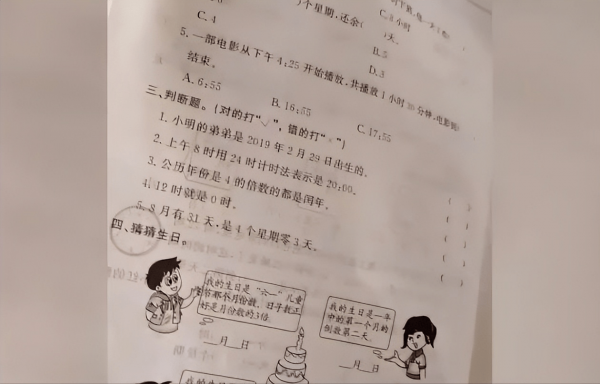 C. 8 小时
个星期，还余（　）天。
C. 4
B. 5
D. 3
5. 一部电影从下午 4:25 开始播放，共播放 1 小时 30 分钟，电影到
结束。
A. 6:55
B. 16:55
C. 17:55
三、判断题。(对的打“✓”，错的打“×”)
1. 小明的弟弟是 2019 年 2 月 29 日出生的。（　）
2. 上午 8 时用 24 时计时法表示是 20:00。（　）
3. 公历年份是 4 的倍数的都是闰年。（　）
4. 12 时就是 0 时。（　）
5. 8 月有 31 天，是 4 个星期零 3 天。（　）
四、猜猜生日。
我的生日是“六一”儿童
节那个月份数，日子数正
好是月份数的3倍。
__月__日
我的生日是一年
中的第一个月的
倒数第二天。
__月__日
我的生日